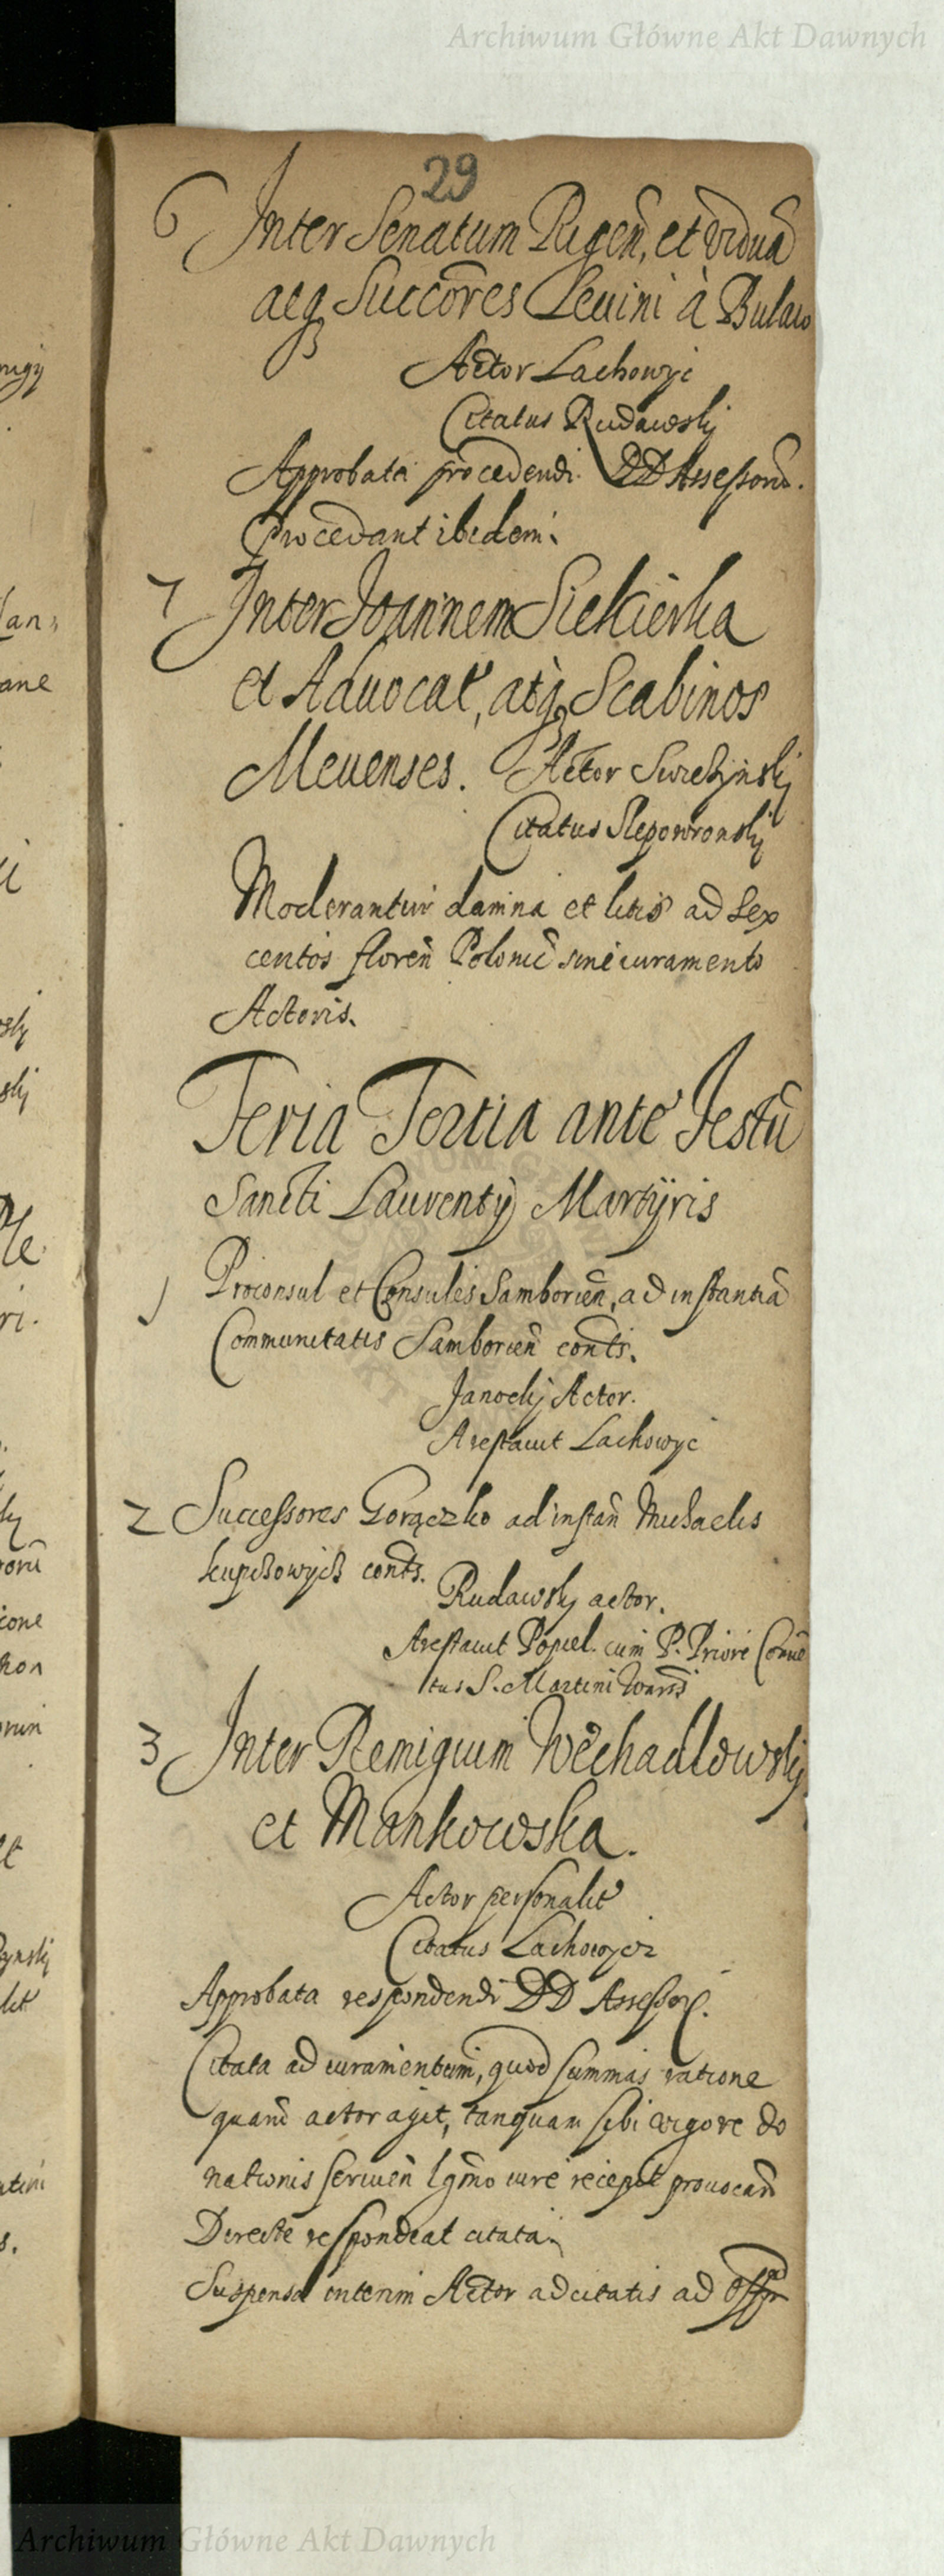 Archiwum Główne Akt Dawnych
29
6 Inter Senatum Rigen̄, et viduā
atq Succōres Levini à Bulaw
Actor Lachowjc
Citatus Rudawskj
Approbata procedendi. DD Assessorū.
Procedant ibidem.
7 Inter Joannem Siekierka
et Aduocat, atq Scabinos
Meuenses. Actor Swiezÿnskj
Citatus Slepowronskj
Moderantur damna et litis ad Sex
centos floren̄ Polonic̄ sine iuramento
Actoris.
Feria Tertia ante Festū
Sancti Laurentÿ Martÿris
1 Proconsul et Consules Samborien̄, ad instantiā
Communitatis Samborien̄ conts.
Janockj Actor.
Arestauit Lachowyc
2 Successores Gorączko ad instan̄ Michaelis
kupczowych conts.
Rudawskj actor.
Arestauit Popiel. cum P. Priore Conuē
tus S. Martini Wars
3 Inter Remigium Wechadlowskj
et Mankowska.
Actor personalit
Citatus Lachowycz
Approbata respondendi DD Assessor.
Citata ad iuramentum, quod summas ratione
quarū actor agit, tanquam sibi vigore do
nationis seruien̄ lgm̄o iure recepit prouocan̄
Directe respondeat citata.
Suspensa interim Actor adcitatis ad
Archiwum Główne Akt Dawnych